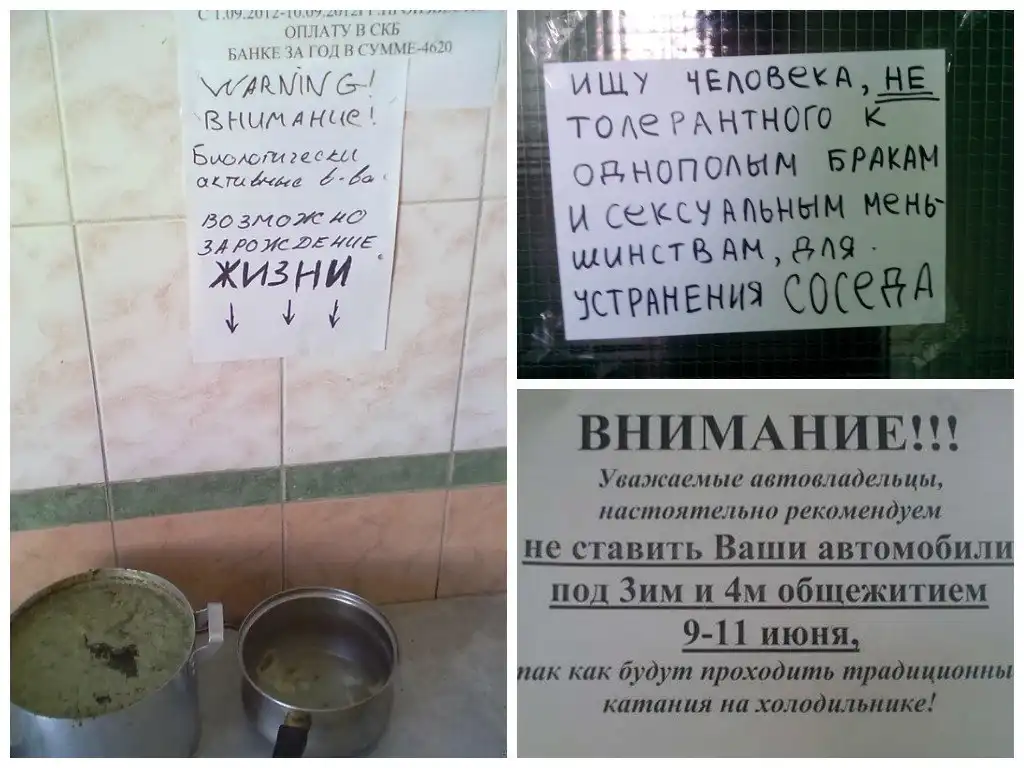 С 1.09.2012-10.09.2012г.
ОПЛАТУ В СКБ
БАНКЕ ЗА ГОД В СУММЕ-4620
WARNING!
ВНИМАНИЕ!
Биологически
активные в-ва.
ВОЗМОЖНО
ЗАРОЖДЕНИЕ
ЖИЗНИ
ИЩУ ЧЕЛОВЕКА, НЕ
ТОЛЕРАНТНОГО К
ОДНОПОЛЫМ БРАКАМ
И СЕКСУАЛЬНЫМ МЕНЬ-
ШИНСТВАМ, ДЛЯ
УСТРАНЕНИЯ СОСЕДА
ВНИМАНИЕ!!!
Уважаемые автовладельцы,
настоятельно рекомендуем
не ставить Ваши автомобили
под 3им и 4м общежитием
9-11 июня,
так как будут проходить традиционны
катания на холодильнике!